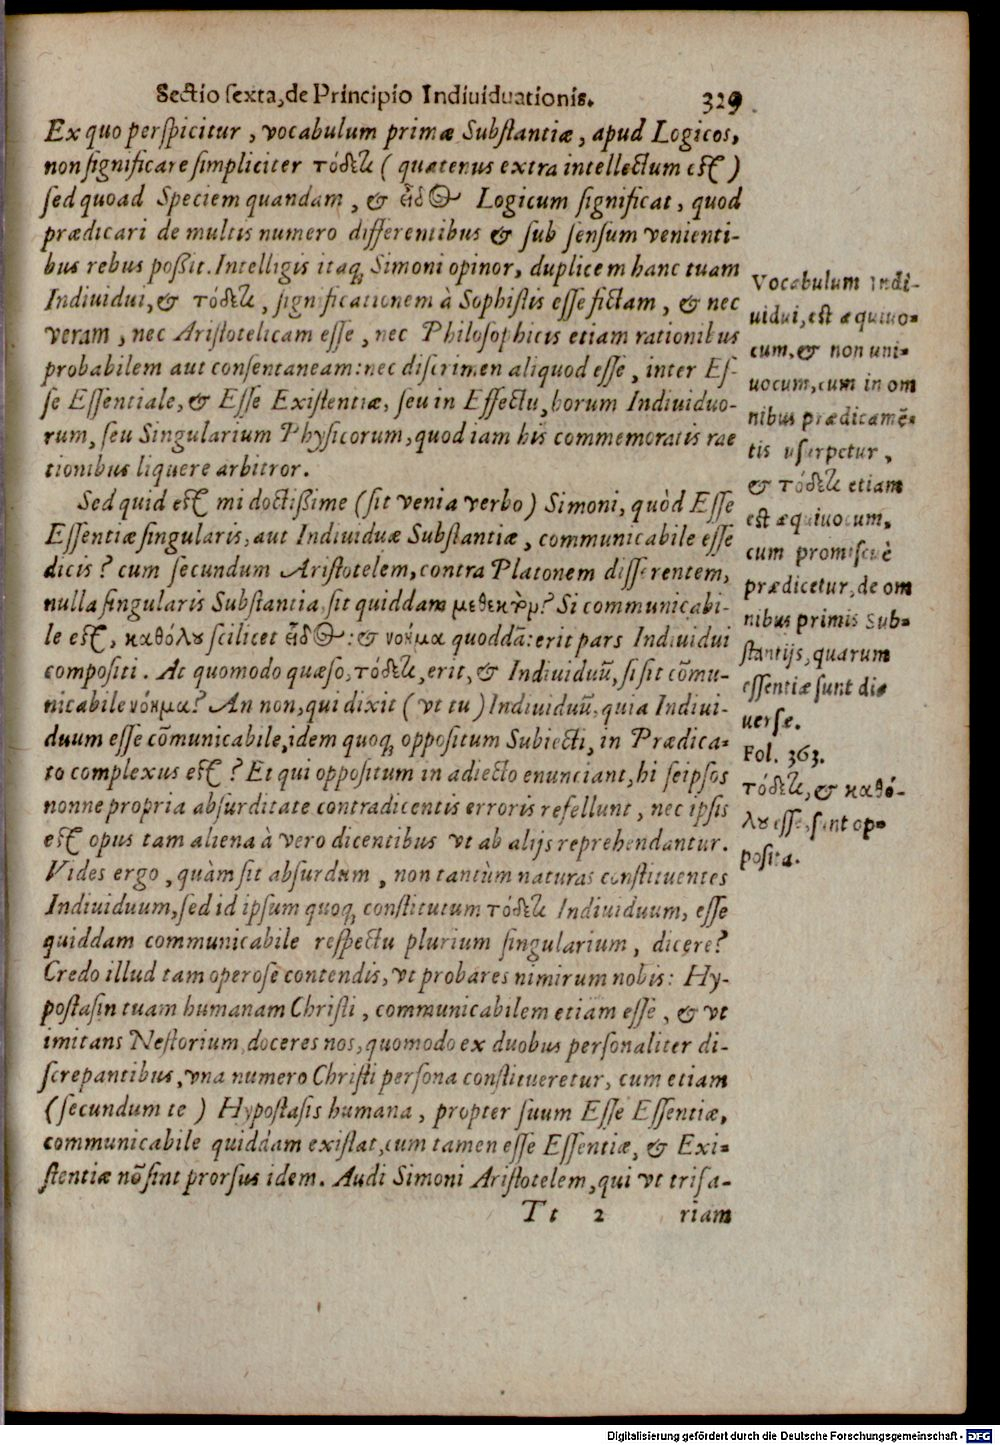 Sectio sexta, de Principio Indiuiduationis. 329
Ex quo perſpicitur, vocabulum primæ Subſtantiæ, apud Logicos,
non ſignificare ſimpliciter τόδε τι (quatenus extra intellectum eſt)
ſed quoad Speciem quandam, & εἶδος Logicum ſignificat, quod
prædicari de multis numero differentibus & ſub ſenſum venienti-
bus rebus poßit. Intelligis itaq; Simoni opinor, duplicem hanc tuam
Indiuidui, & τόδε τι, ſignificationem à Sophiſtis eſſe fictam, & nec
veram, nec Ariſtotelicam eſſe, nec Philoſophicis etiam rationibus
probabilem aut conſentaneam: nec diſcrimen aliquod eſſe, inter Eſ-
ſe Eſſentiale, & Eſſe Exiſtentiæ, ſeu in Effectu, horum Indiuiduo-
rum, ſeu Singularium Phyſicorum, quod iam his commemoratis rae
tionibus liquere arbitror.
Sed quid eſt mi doctißime (ſit venia verbo) Simoni, quòd Eſſe
Eſſentiæ ſingularis, aut Indiuiduæ Subſtantiæ, communicabile eſſe
dicis? cum ſecundum Ariſtotelem, contra Platonem diſſerentem,
nulla ſingularis Subſtantia, ſit quiddam μεθεκτὸν? Si communicabi-
le eſt, καθόλου ſcilicet εἶδος: & νόημα quoddā: erit pars Indiuidui
compoſiti. At quomodo quæſo, τόδε τι, erit, & Indiuiduū, ſi ſit cōmu-
nicabile νόημα? An non, qui dixit (vt tu) Indiuiduū, quia Indiui-
duum eſſe cōmunicabile, idem quoq; oppoſitum Subiecti, in Prædica-
to complexus eſt? Et qui oppoſitum in adiecto enunciant, hi ſeipſos
nonne propria abſurditate contradicentis erroris refellunt, nec ipſis
eſt opus tam aliena à vero dicentibus vt ab alijs reprehendantur.
Vides ergo, quàm ſit abſurdum, non tantùm naturas conſtituentes
Indiuiduum, ſed id ipſum quoq; conſtitutum τόδε τι Indiuiduum, eſſe
quiddam communicabile reſpectu plurium ſingularium, dicere?
Credo illud tam operoſe contendis, vt probares nimirum nobis: Hy-
poſtaſin tuam humanam Chriſti, communicabilem etiam eſſe, & vt
imitans Neſtorium, doceres nos, quomodo ex duobus perſonaliter di-
ſcrepantibus, vna numero Chriſti perſona conſtitueretur, cum etiam
(ſecundum te) Hypoſtaſis humana, propter ſuum Eſſe Eſſentiæ,
communicabile quiddam exiſtat, cum tamen eſſe Eſſentiæ, & Exi-
ſtentiæ nō ſint prorſus idem. Audi Simoni Ariſtotelem, qui vt triſa-
Tt 2 riam
Vocabulum Indi-
uidui, eſt æquiuo-
cum, & non uni-
uocum, cum in om
nibus prædicamē-
tis uſurpetur,
& τόδε τι etiam
eſt æquiuocum,
cum promiſcuè
prædicetur, de om
nibus primis Sub-
ſtantijs, quarum
eſſentiæ ſunt di-
uerſæ.
Fol. 363.
τόδε τι, & καθό-
λου eſſe, ſunt op-
poſita.
Digitalisierung gefördert durch die Deutsche Forschungsgemeinschaft - DFG